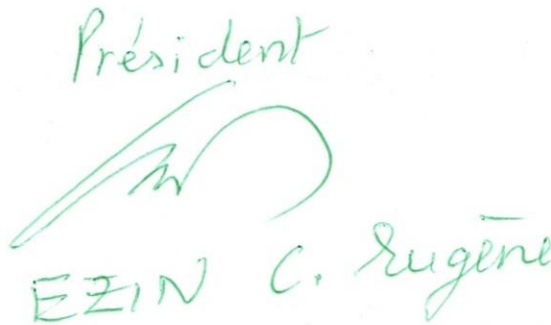 Président
EZIN C. Eugène